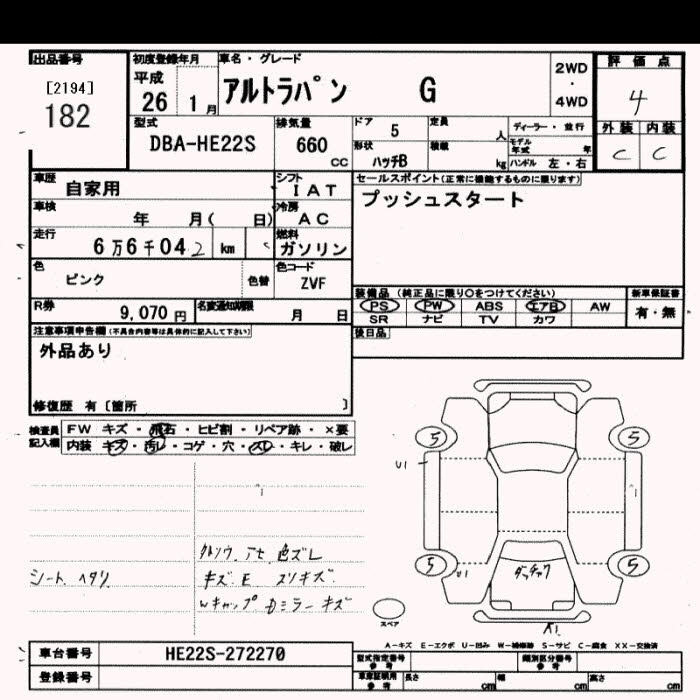 出品番号
[2194]
182
初度登録年月
平成
26 1月
車名・グレード
アルトラパン G
2WD
・
4WD
評価点
4
外装 内装
C C
型式
DBA-HE22S
排気量
660
CC
ドア 5
形状 ハッチB
定員 人
積載 kg
ディーラー・並行
モデル年式 年
ハンドル 左・右
車歴 自家用
シフト IAT
車検 年 月( 日)
冷房 AC
走行 6万6千042 km
燃料 ガソリン
色 ピンク 色替
色コード ZVF
R券 9,070円
名変通知期限 月 日
セールスポイント(正常に機能するものに限ります)
プッシュスタート
装備品(純正品に限り○をつけてください)
新車保証書
PS PW ABS エアB AW
SR ナビ TV カワ
有・無
後日品
注意事項申告欄(不具合内容等は具体的に記入して下さい)
外品あり
修復歴 有〔箇所 〕
検査員記入欄
FW キズ・飛石・ヒビ割・リペア跡・×要
内装 キズ・汚レ・コゲ・穴・スレ・キレ・破レ
シート ヘタリ
色ズレ
キズE スリキズ
Wキャップ Dミラーキズ
5 5
U1
5 5
U1
A1
スペア
A−キズ E−エクボ U−凹み W−補修跡 S−サビ C−腐食 XX−交換済
車台番号 HE22S-272270
登録番号
型式指定番号 参考
類別区分番号 参考
車庫証明用 参考
長さ cm
幅 cm
高さ cm